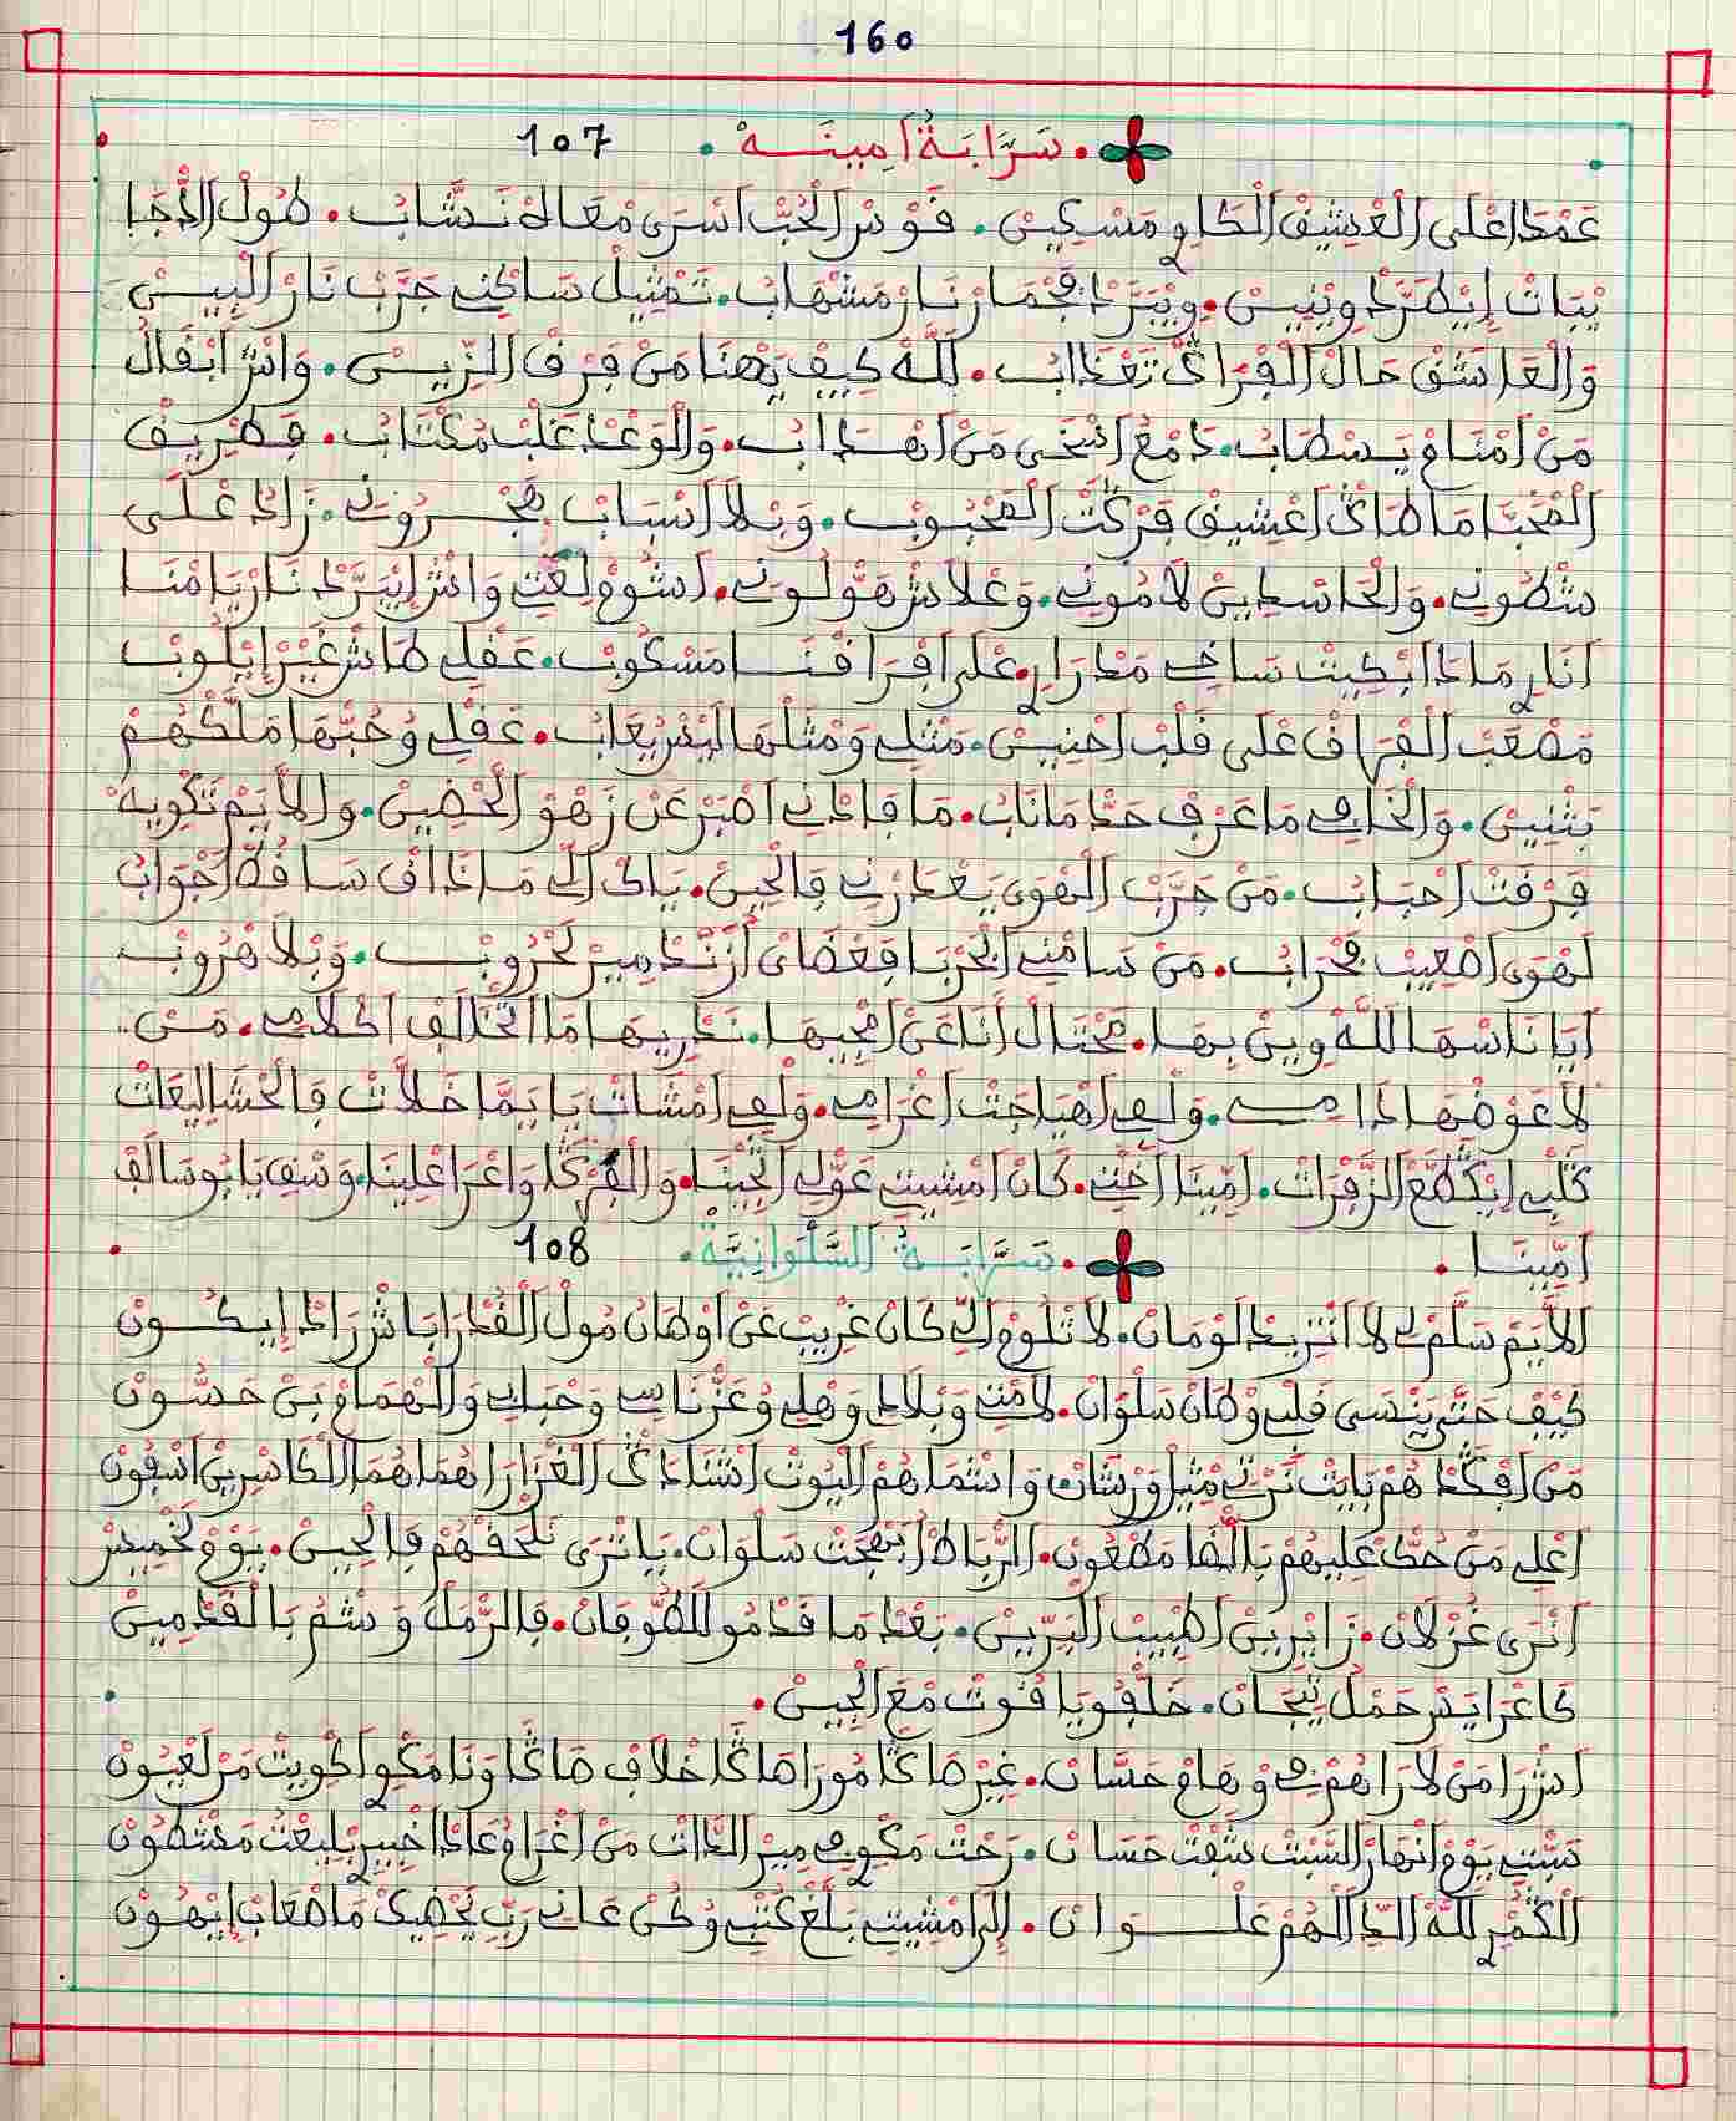 160
سَرَّابَةُ اَمِينَة 107
عَمْدَا اعْلَى الْعْشِيقْ الْكَاوِي مَسْكِينْ. قَوْسْ الْحُبّْ اَسْرَى مْعَاهْ نَشَّابْ. طُولْ الدّْجَا
يْبَاتْ إِيْطَرَّدْ وِيْنِينْ. وِيْبَرَّدْ اجْمَارْ نَارْ مَشْهَابْ. تَمْثِيلْ سَاكْنِي جَرَّبْ نَارْ الْبِينْ
وَالْعَاشَقْ حَالْ الْفْرَاكْ تَعْدَابْ. لَلَّهْ كِيفْ يَهْنَا مَنْ فَرْقْ الزِّينْ. وَاشْ ابْقَالُ
مَنْ امْنَامْ يَسْطَابْ. دَمْعُ اسْخَى مَنْ اهْدَابْ. وَالْوَعْدْ غَلْبْ مَكْتَابْ. فَطْرِيفْ
الْمْحَبَّا مَا طَاكْ اعْشِيقْ فَرْكَتْ الْمَحْبُوبْ. وَبْلَا اسْبَابْ هَجْرُونِي. زَادْ عْلَى
شْطُونِي. وَالْحَاسْدِينْ لَامُونِي. وَعْلَاشْ هَوْلُونِي. اشُومْ لِعْتِي وَاشْ اِيْبَرَّدْ نَارْ يَامْنَا
اَنَارِي مَاذَا ابْكِيتْ سَاخِي مَدْرَارِي عْلَى افْرَاقْنَا مَسْكُوبْ. عَقْلِي طَاشْ غِيرْ اِيْلُوبْ
مَصْعَبْ الْفْرَاقْ عْلَى قَلْبْ احْنِينْ. مَثْلِي وَمْثَلْهَا الْبْسْ يَعَابْ. عَقْلِي وُحُبّْهَا مَلَّكْهُمْ
بَثْنِينْ. وَالْخَاوِي مَا عْرَفْ حَدّْ مَانَابْ. مَا فَادْنِي اصْبَرْ عَنْ زَهْوْ الْحْصِينْ. وَالْلَّايَمْ تَكْوِيهْ
فَرْقَتْ احْبَابْ. مَنْ جَرَّبْ الْهْوَى يَعْدَرْنِي فَالْحِينْ. يَاكْ اللِّي مَا ذَاقْ سَاقَطْ اجْوَابْ
لَهْوَى اصْعِيبْ فَحْرَابْ. مَنْ سَامْنِي الْحَرْبَا فَعْضَايْ ازْنَدْ مِيرْ لَحْرُوبْ. وَبْلَا هْرُوبْ
اَيَانَاسْهَا لَلَّهْ وِينْ بِهَا. مَحْتَالْ اَنَا عَنْ امْجِيهَا. نَدْرِيهَا مَا اتْخَالَفْ اكْلَامِي. مَنْ
لَا عَوْضْهَا دَامِي. وَلْفِي اهْيَاجَتْ اغْرَامِي. وَلْفِي امْشَاتْ يَا يَمَّا خَلَّاتْ فَالْحْشَا لِيعَاتْ
كَلْبِي اِيْكَطَّعْ الزَّفْرَاتْ. اَمِّينَا اخْتِي. كَانْ امْشِيتِي عَوّْلِي اتْجِينَا. وَالْفَرْكَا وَاعْرَا عْلِينَا. وَشْفِي يَا بُو سَالَفْ
اَمِّينَا .
سَرَّابَةُ السَّلْوَانِيَّة 108
اَلْلَّايَمْ سَلَّمْ لِي لَا اتْزِيدْ لَوْمَانْ. لَا تْلُومْ اللِّي كَانْ غْرِيبْ عَنْ اَوْطَانُ مُولْ الْقُدْرَا بَاشْ رَادْ إِيكُونْ
كِيفْ حَتَّى يَنْسَى قَلْبِي وْطَانْ سَلْوَانْ. لَامْتِي وَبْلَادِي وَهْلِي وُعَزّْ نَاسِي وَحْبَابِي وَالْهْمَامْ بَنْ حَسُّونْ
مَنْ افْكَدْهُمْ بَايْتْ نَرْتِي مْثِيلْ وَرْشَانْ وَاسْمَاهُمْ الْيُوثْ اشْدَادْ الْغْزَارَا هُمَا هُمَا الْكَاسْرِينْ اسْفُونْ
اعْلِي مَنْ حُكّْ عْلِيهُمْ بَالْقْفَا مَطْعُونْ. الرّْبَاطْ ابْهَجْتْ سَلْوَانْ. يَا تْرَى نَلْحَقْهُمْ فَالْحِينْ. يَوْمْ لَخْمِيسْ
اَنْرَى غُزْلَانْ. زَايْرِينْ اطْبِيبْ الْبَرِّينْ. بَعْدْ مَا قَدْمُو لَلطَّوْفَانْ. فَالرّْمَلْ وَشْمُ بَالْقَدْمِينْ
كَاعْرَايَسْ حَمْلْ تِيجَانْ. خَلْفُو يَاقُوتْ مْعَ الْجِينْ.
اَشْ رَا مَنْ لَا رَاهُمْ فِي وْهَامْ حَسَّانْ. غِيرْ هَاكَّا مُورَا هَاكَّا خْلَافْ هَاكَّا وَنَا مَكْوِي اكْوِيتْ مَنْ لَعْيُونْ
سَبْتِي يَوْمْ انْهَارْ السَّبْتْ شَفْتْ حَسَّانْ. رَحْتْ مَكْوِي مِيرْ الدَّاتْ مَنْ اغْرَامْ غَادْ اخْبِيرْ بَلِيعْتْ مَشْطُونْ
الْكْمَرْ لَلَّهْ الدَّالْهُمْ عَلْوَانْ. إِلَا مْشِيتِي بَلَّغْ كْتَبِي وُكُنْ عَانِي رَبِّي يَحْضِيكْ مَا صْعَابْ اِيْهُونْ